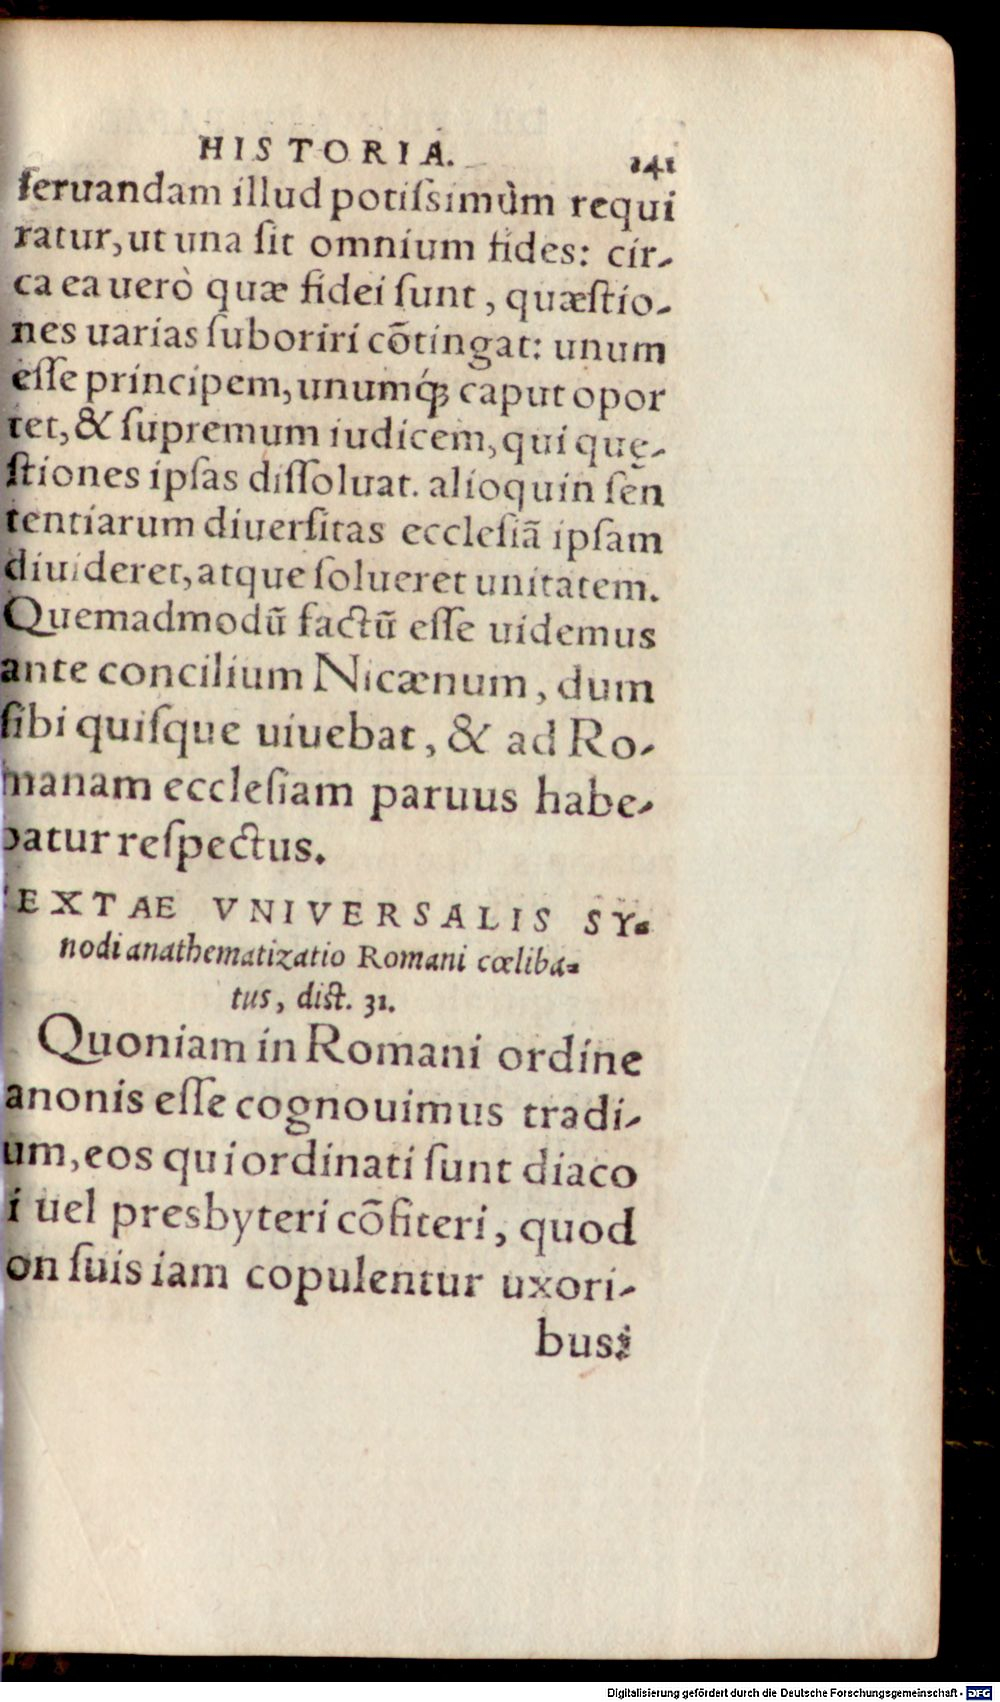 HISTORIA. 141
ſeruandam illud potiſsimùm requi
ratur, ut una ſit omnium fides: cir-
ca ea uerò quæ fidei ſunt, quæſtio-
nes uarias ſuboriri cõtingat: unum
eſſe principem, unumq́ꝫ caput opor
tet, & ſupremum iudicem, qui quę-
ſtiones ipſas diſſoluat. alioquin ſen
tentiarum diuerſitas eccleſiã ipſam
diuideret, atque ſolueret unitatem.
Quemadmodũ factũ eſſe uidemus
ante concilium Nicænum, dum
ſibi quiſque uiuebat, & ad Ro-
manam eccleſiam paruus habe-
batur reſpectus.
EXTAE VNIVERSALIS SY-
nodi anathematizatio Romani cœliba-
tus, diſt. 31.
Quoniam in Romani ordine
anonis eſſe cognouimus tradi-
um, eos qui ordinati ſunt diaco
i uel presbyteri cõfiteri, quod
on ſuis iam copulentur uxori-
bus:
Digitalisierung gefördert durch die Deutsche Forschungsgemeinschaft - DFG